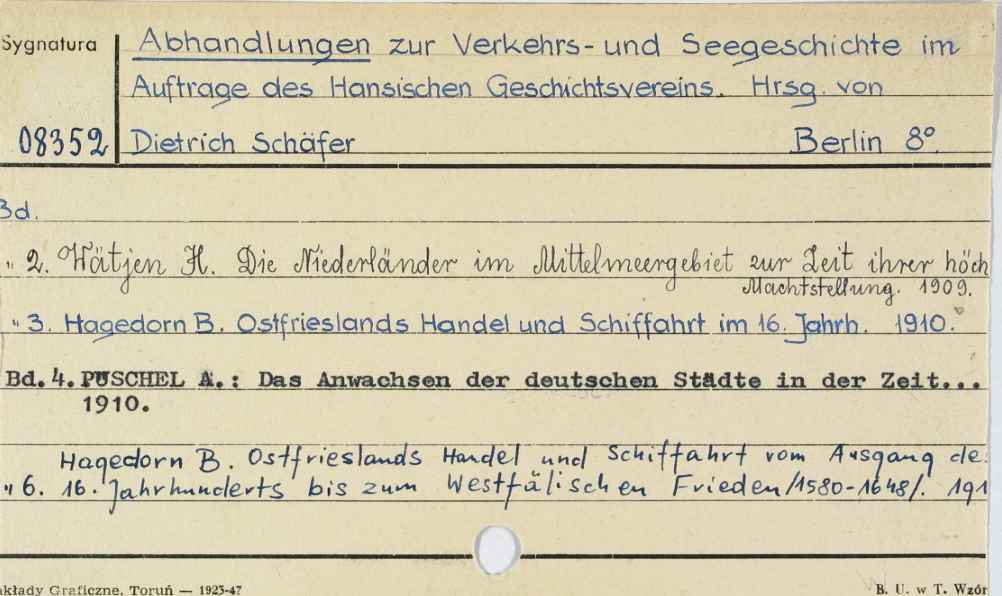 Sygnatura
Abhandlungen zur Verkehrs- und Seegeschichte im
Auftrage des Hansischen Geschichtsvereins. Hrsg. von
08352 Dietrich Schäfer Berlin 8°.
Bd.
" 2. Wätjen H. Die Niederländer im Mittelmeergebiet zur Zeit ihrer höch
Machtstellung. 1909.
" 3. Hagedorn B. Ostfrieslands Handel und Schiffahrt im 16. Jahrh. 1910.
Bd. 4. PUSCHEL A.: Das Anwachsen der deutschen Städte in der Zeit...
1910.
Hagedorn B. Ostfrieslands Handel und Schiffahrt vom Ausgang de
" 6. 16. Jahrhunderts bis zum Westfälischen Frieden /1580-1648/. 191
akłady Graficzne, Toruń — 1925-47 B. U. w T. Wzór